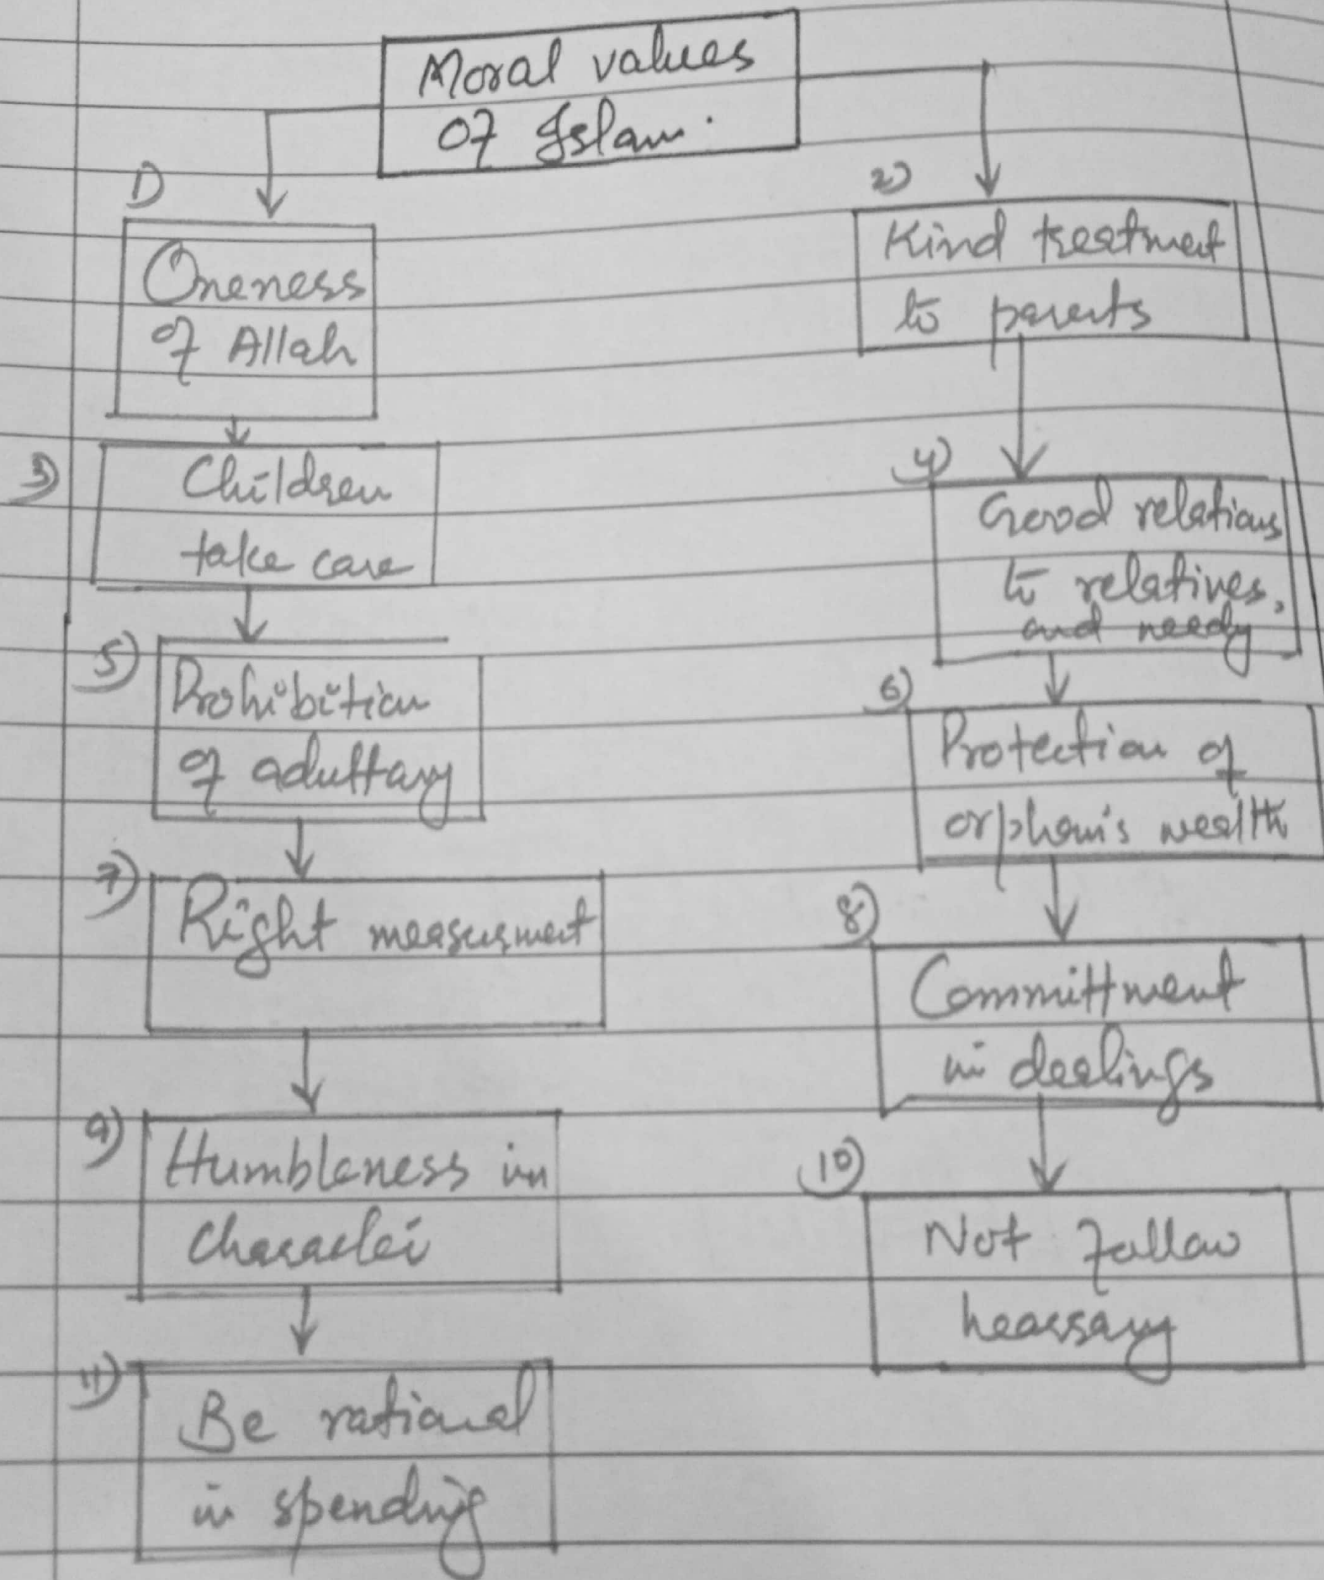 Moral values
of Islam.
1)
Oneness
of Allah
2)
Kind treatment
to parents
3)
Children
take care
4)
Good relations
to relatives,
and needy
5)
Prohibition
of aduttary
6)
Protection of
orphan's wealth
7)
Right measurment
8)
Committment
in dealings
9)
Humbleness in
character
10)
Not follow
hearsary
11)
Be rational
in spending